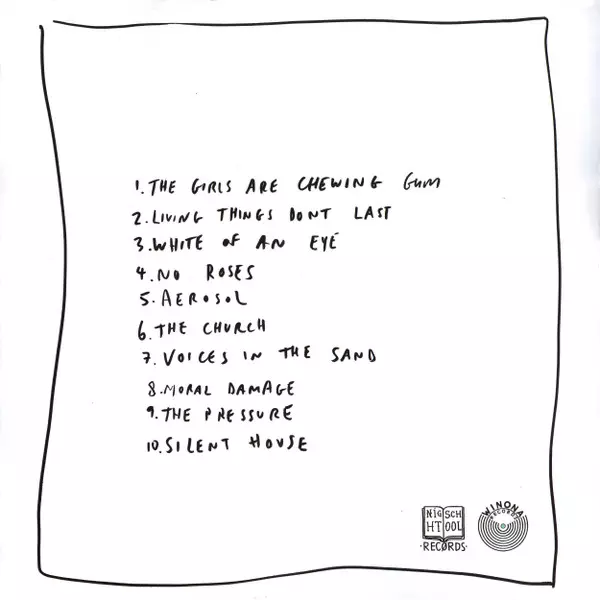 1. THE GIRLS ARE CHEWING GUM
2. LIVING THINGS DONT LAST
3. WHITE OF AN EYE
4. NO ROSES
5. AEROSOL
6. THE CHURCH
7. VOICES IN THE SAND
8. MORAL DAMAGE
9. THE PRESSURE
10. SILENT HOUSE
NIG SCH
HT OOL
·RECORDS·
WINONA
RECORDS